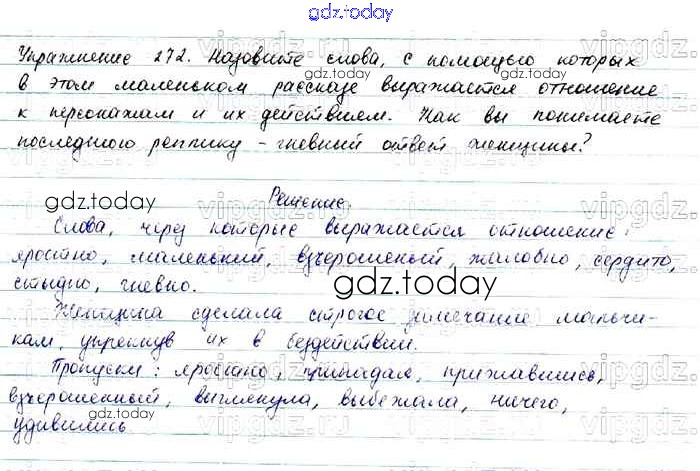 gdz.today
Упражнение 272. Назовите слова, с помощью которых
gdz.today
в этом маленьком рассказе выражается отношение
к персонажам и их действиям. Как вы понимаете
последнюю реплику - гневный ответ женщины?
gdz.today
Решение.
Слова, через которые выражается отношение:
яростно, маленький, взъерошеный, жалобно, сердито,
стыдно, гневно.
gdz.today
Женщина сделала строгое замечание мальчи-
кам, упрекнув их в бездействии.
Пропуски: яростно, припадая, прижавшись,
взъерошенный, выглянула, выбежала, ничего,
gdz.today
gdz.today
удивились
vipgdz.ru